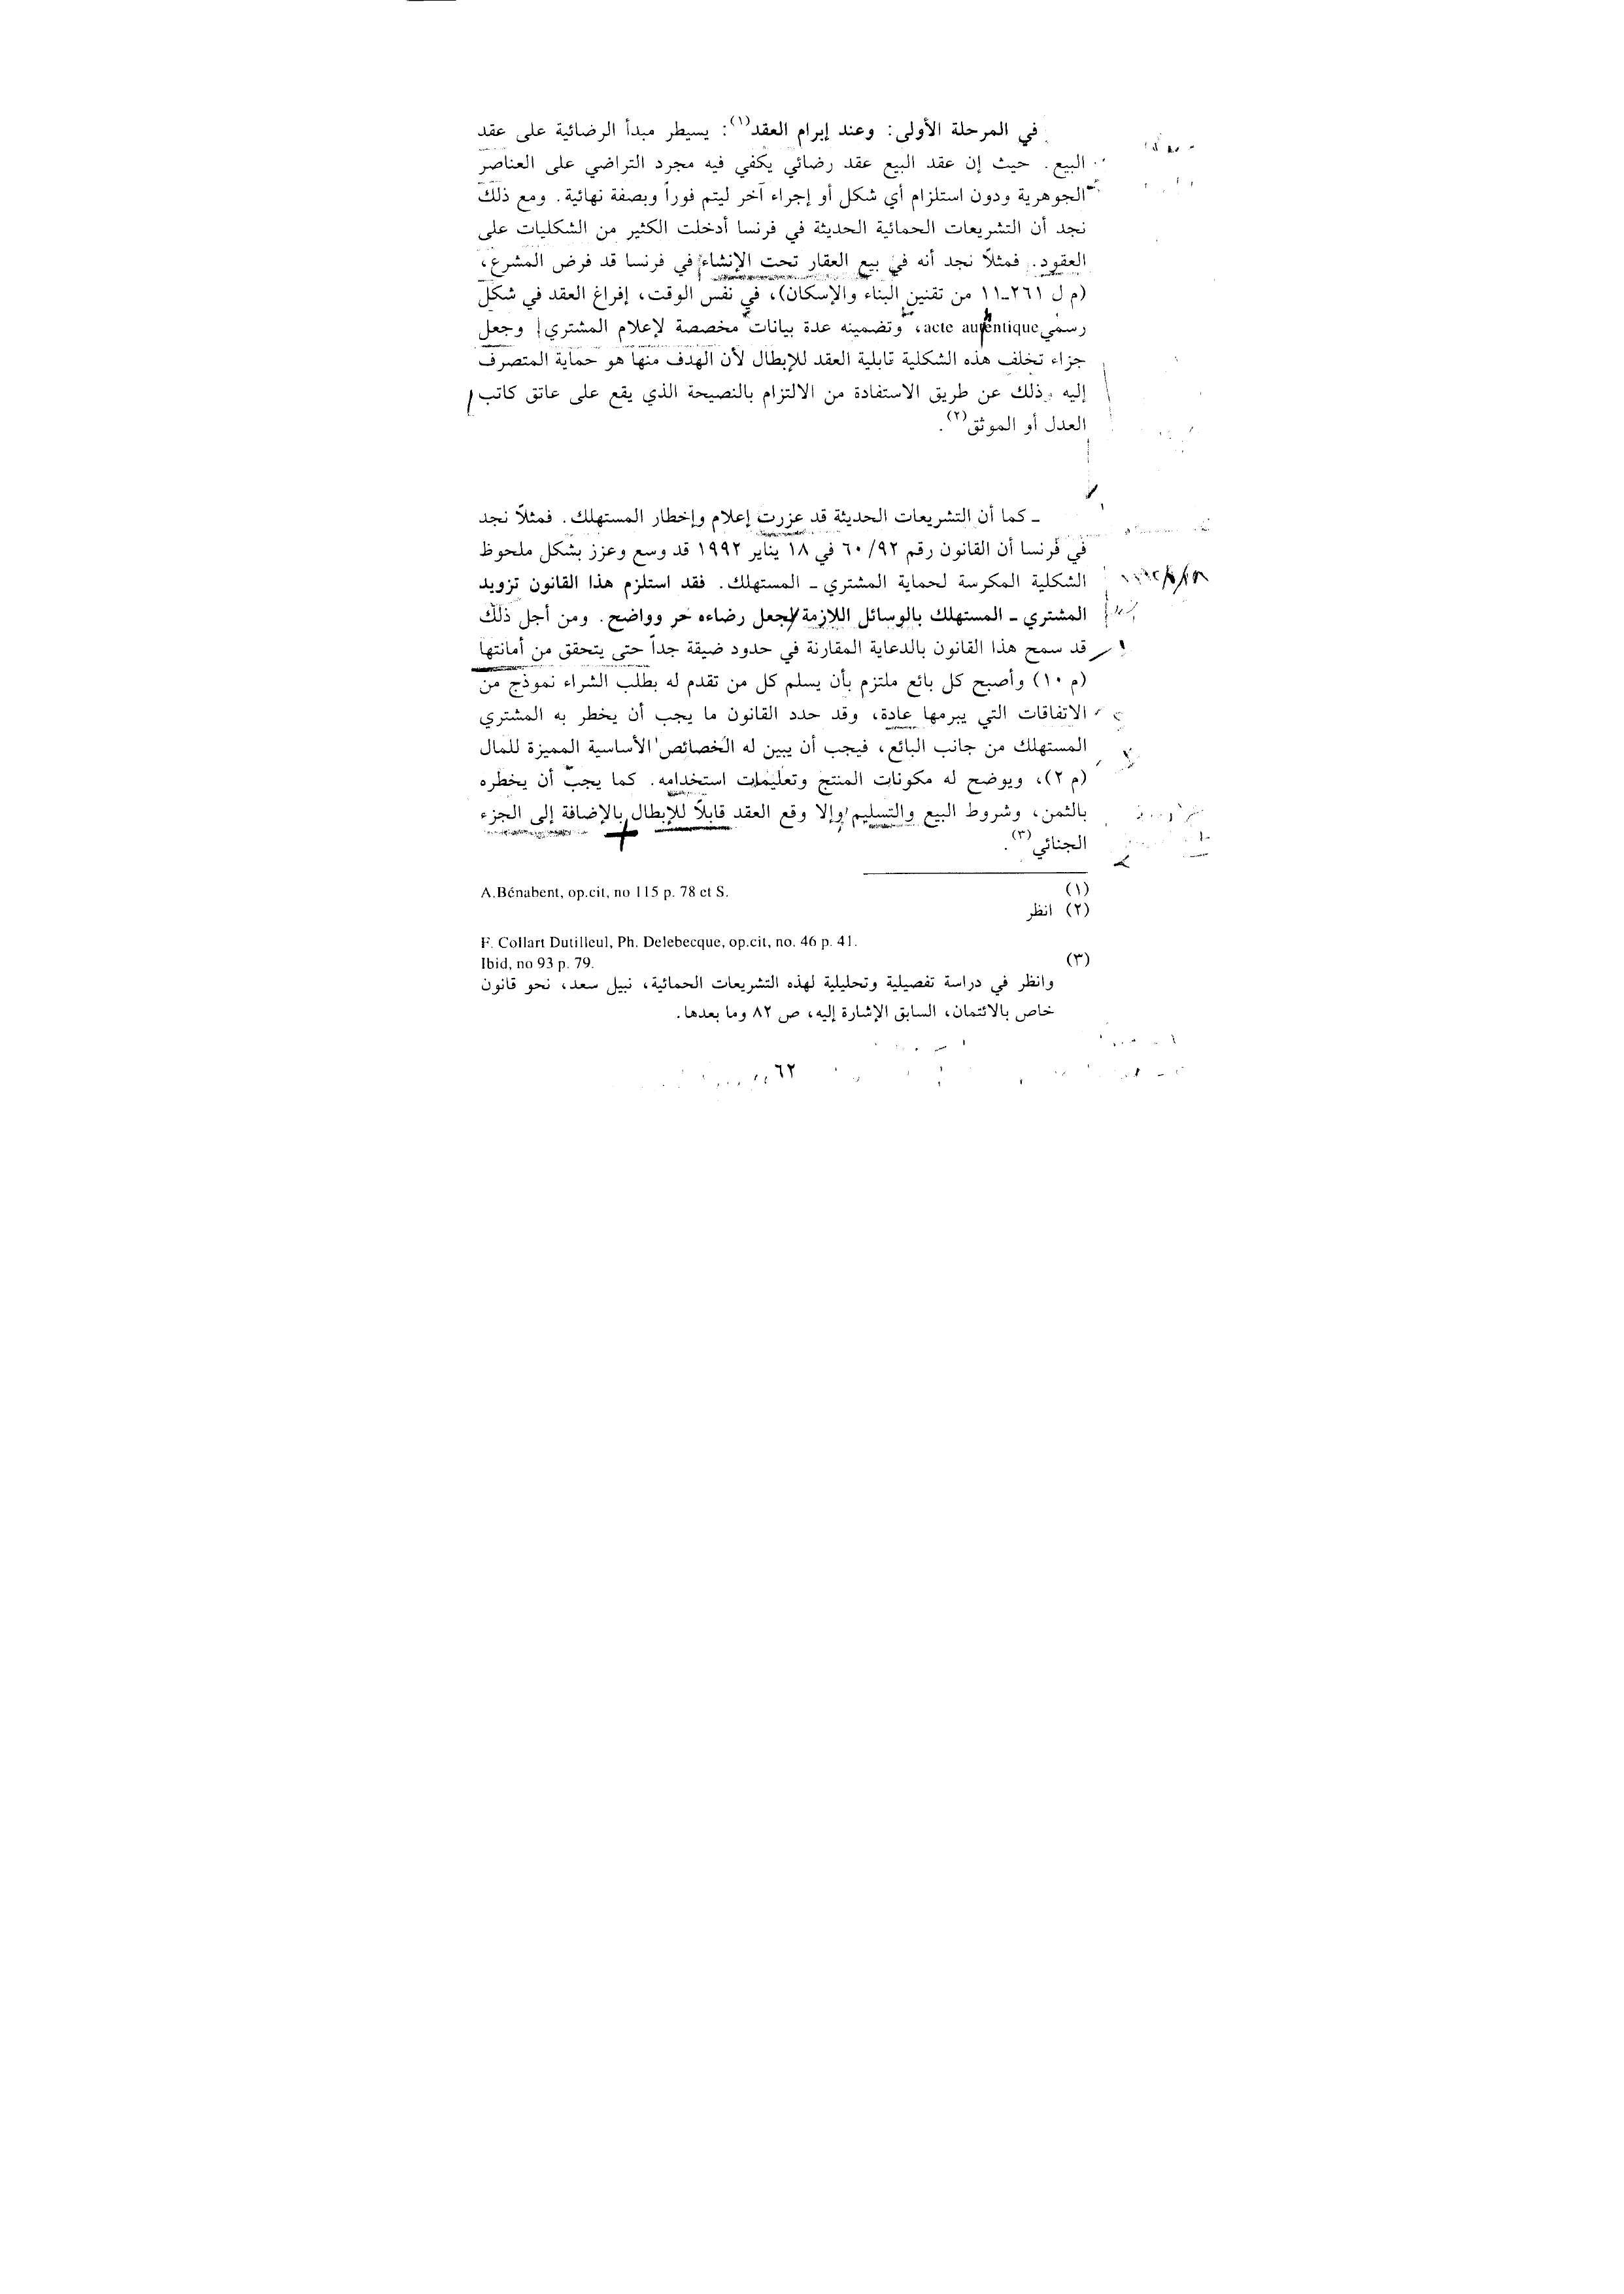 في المرحلة الأولى: وعند إبرام العقد(١): يسيطر مبدأ الرضائية على عقد
البيع. حيث إن عقد البيع عقد رضائي يكفي فيه مجرد التراضي على العناصر
الجوهرية ودون استلزام أي شكل أو إجراء آخر ليتم فوراً وبصفة نهائية. ومع ذلك
نجد أن التشريعات الحمائية الحديثة في فرنسا أدخلت الكثير من الشكليات على
العقود. فمثلاً نجد أنه في بيع العقار تحت الإنشاء في فرنسا قد فرض المشرع،
(م ل ٢٦١ـ١١ من تقنين البناء والإسكان)، في نفس الوقت، إفراغ العقد في شكل
رسمي acte autentique، وتضمينه عدة بيانات مخصصة لإعلام المشتري وجعل
جزاء تخلف هذه الشكلية قابلية العقد للإبطال لأن الهدف منها هو حماية المتصرف
إليه وذلك عن طريق الاستفادة من الالتزام بالنصيحة الذي يقع على عاتق كاتب
العدل أو الموثق(٢).
ـ كما أن التشريعات الحديثة قد عززت إعلام وإخطار المستهلك. فمثلاً نجد
في فرنسا أن القانون رقم ٦٠/٩٢ في ١٨ يناير ١٩٩٢ قد وسع وعزز بشكل ملحوظ
الشكلية المكرسة لحماية المشتري ـ المستهلك. فقد استلزم هذا القانون تزويد
المشتري ـ المستهلك بالوسائل اللازمة لجعل رضاءه حر وواضح. ومن أجل ذلك
قد سمح هذا القانون بالدعاية المقارنة في حدود ضيقة جداً حتى يتحقق من أمانتها
(م ١٠) وأصبح كل بائع ملتزم بأن يسلم كل من تقدم له بطلب الشراء نموذج من
الاتفاقات التي يبرمها عادة، وقد حدد القانون ما يجب أن يخطر به المشتري
المستهلك من جانب البائع، فيجب أن يبين له الخصائص الأساسية المميزة للمال
(م ٢)، ويوضح له مكونات المنتج وتعليمات استخدامه. كما يجب أن يخطره
بالثمن، وشروط البيع والتسليم وإلا وقع العقد قابلاً للإبطال بالإضافة إلى الجزء
الجنائي(٣).
(١) A.Bénabent, op.cit, no 115 p. 78 et S.
(٢) انظر
F. Collart Dutilleul, Ph. Delebecque, op.cit, no. 46 p. 41.
(٣) Ibid, no 93 p. 79.
وانظر في دراسة تفصيلية وتحليلية لهذه التشريعات الحمائية، نبيل سعد، نحو قانون
خاص بالائتمان، السابق الإشارة إليه، ص ٨٢ وما بعدها.
٦٢